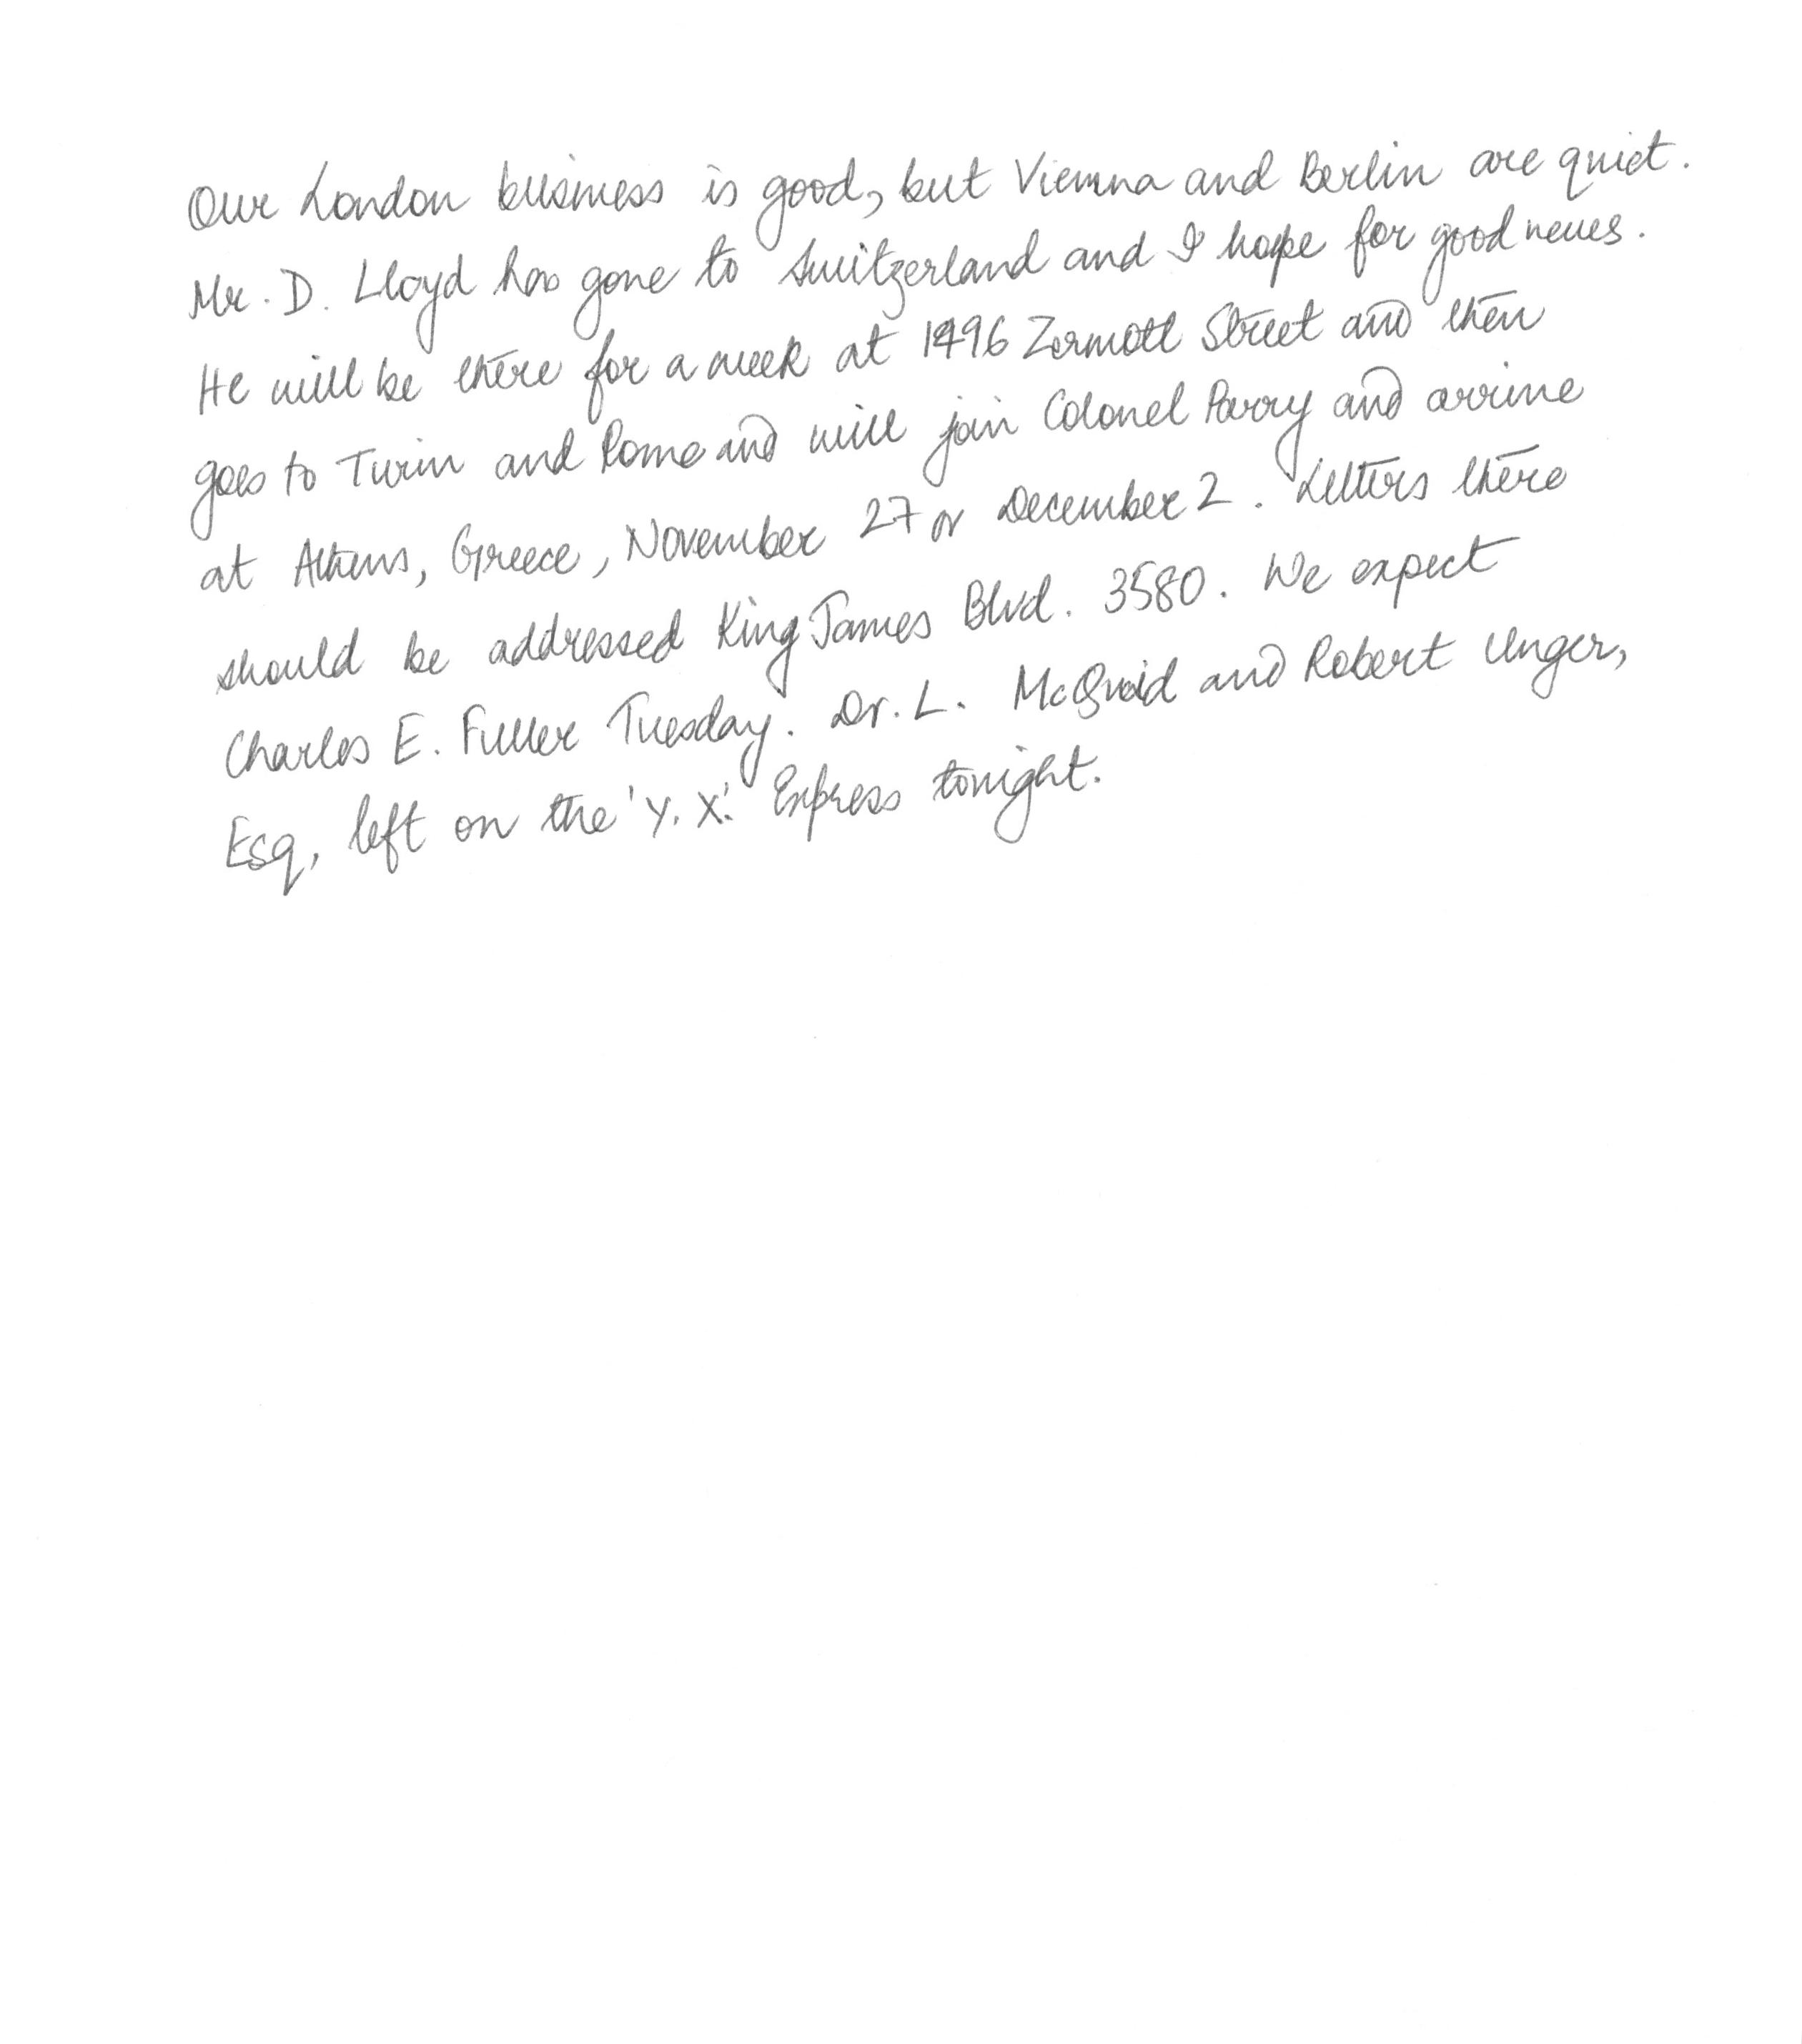 Our London business is good, but Vienna and Berlin are quiet.
Mr. D. Lloyd has gone to Switzerland and I hope for good news.
He will be there for a week at 1496 Zermott Street and then
goes to Turin and Rome and will join Colonel Parry and arrive
at Athens, Greece, November 27 or December 2. Letters there
should be addressed King James Blvd. 3580. We expect
Charles E. Fuller Tuesday. Dr. L. McQuaid and Robert Unger,
Esq, left on the 'Y. X.' Express tonight.